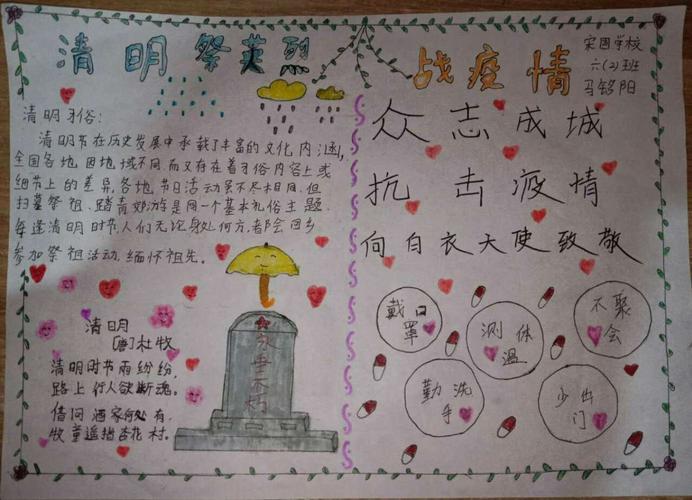 清明祭英烈
清明习俗:
清明节在历史发展中承载了丰富的文化内涵,
全国各地因地域不同,而又存在着习俗内容上或
细节上的差异,各地节日活动虽不尽相同,但
扫墓祭祖、踏青郊游是同一个基本礼俗主题.
每逢清明时节,人们无论身处何方,都会回乡
参加祭祖活动,缅怀祖先。
清明
[唐]杜牧
清明时节雨纷纷,
路上行人欲断魂。
借问酒家何处有,
牧童遥指杏花村。
永垂不朽
战疫情
宋固学校
六(2)班
马铭阳
众志成城
抗击疫情
向白衣天使致敬
戴口罩
测体温
不聚会
勤洗手
少出门